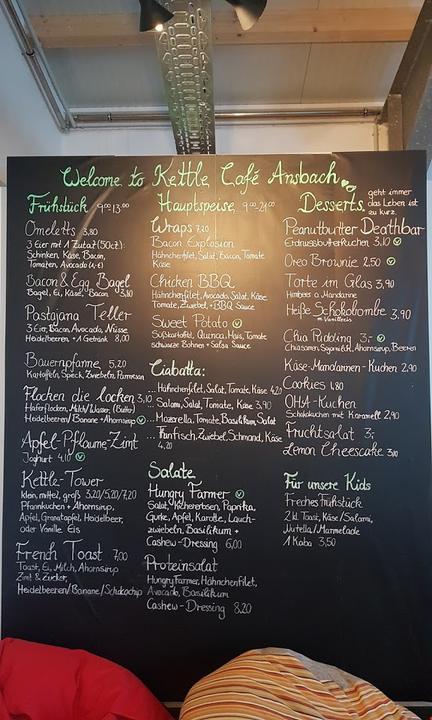 Welcome to Kettle Café Ansbach
Frühstück 9:00-13:00
Omeletts 3,80
3 Eier mit 1 Zutat (50ct):
Schinken, Käse, Bacon,
Tomaten, Avocado
Bacon & Egg Bagel
Bagel, Ei, Käse, Bacon 4,30
Pastajana Teller
3 Eier, Bacon, Avocado, Nüsse
Heidelbeeren + 1 Getränk 8,00
Bauernpfanne 5,20
Kartoffeln, Speck, Zwiebeln, Parmesan
Flocken die Locken 3,10
Haferflocken, Milch/Wasser, (Butter)
Heidelbeeren/Banane + Ahornsirup
Apfel-Pflaume-Zimt
Joghurt 4,10
Kettle-Tower
klein, mittel, groß 3,20/5,20/7,20
Pfannkuchen + Ahornsirup,
Apfel, Granatapfel, Heidelbeer,
oder Vanille Eis
French Toast 7,00
Toast, Ei, Milch, Ahornsirup
Zimt & Zucker,
Heidelbeeren/Banane/Schokochip
Hauptspeise 9:00-21:00
Wraps 7,20
Bacon Explosion
Hähnchenfilet, Salat, Bacon, Tomate
Käse
Chicken BBQ
Hähnchenfilet, Avocado, Salat, Käse
Tomate, Zwiebel, + BBQ Sauce
Sweet Potato
Süßkartoffel, Quinoa, Mais, Tomate
schwarze Bohnen + Salsa Sauce
Ciabatta:
... Hähnchenfilet, Salat, Tomate, Käse 4,20
... Salami, Salat, Tomate, Käse 3,90
... Mozzarella, Tomate, Basilikum, Salat
... Thunfisch, Zwiebel, Schmand, Käse
4,20
Salate
Hungry Farmer
Salat, Kichererbsen, Paprika,
Gurke, Apfel, Karotte, Lauch-
zwiebeln, Basilikum +
Cashew-Dressing 6,00
Proteinsalat
Hungry Farmer, Hähnchenfilet,
Avocado, Basilikum
Cashew-Dressing 8,20
Desserts geht immer
das Leben ist
zu kurz.
Peanutbutter Deathbar
Erdnussbutterkuchen 3,10
Oreo Brownie 2,50
Torte im Glas 3,90
Himbeer o. Mandarine
Heiße Schokobombe 3,90
m. Vanilleeis
Chia Pudding 3,-
Chiasamen, Sojamilch, Ahornsirup, Beeren
Käse-Mandarinen-Kuchen 2,90
Cookies 1,80
OHA-Kuchen
Schokokuchen mit Karamell 2,90
Fruchtsalat 3,-
Lemon Cheesecake 3,00
Für unsere Kids
Freches Frühstück
2 kl. Toast, Käse/Salami,
Nutella/Marmelade
1 Kaba 3,50